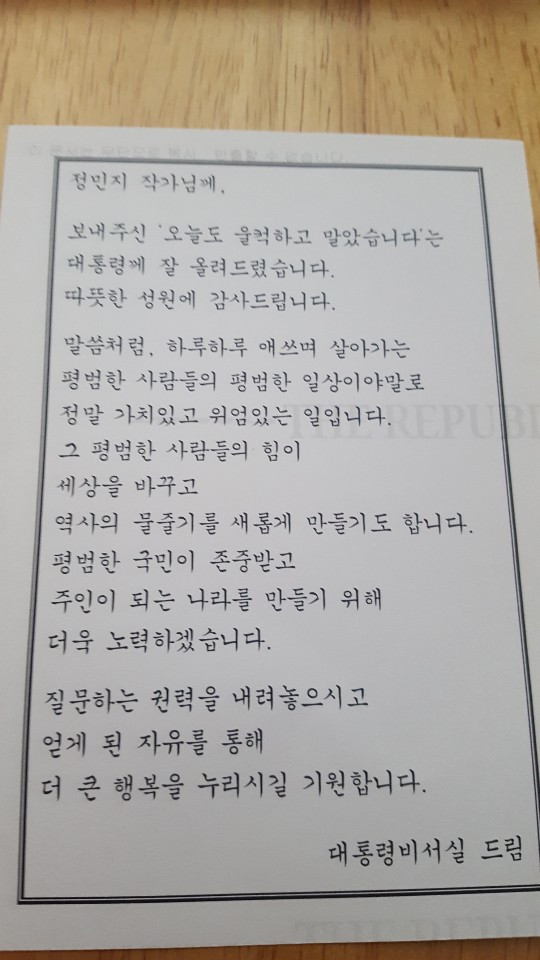 정민지 작가님께,
보내주신 '오늘도 울컥하고 말았습니다'는
대통령께 잘 올려드렸습니다.
따뜻한 성원에 감사드립니다.
말씀처럼, 하루하루 애쓰며 살아가는
평범한 사람들의 평범한 일상이야말로
정말 가치있고 위엄있는 일입니다.
THE REPUBL
그 평범한 사람들의 힘이
세상을 바꾸고
역사의 물줄기를 새롭게 만들기도 합니다.
평범한 국민이 존중받고
주인이 되는 나라를 만들기 위해
더욱 노력하겠습니다.
질문하는 권력을 내려놓으시고
얻게 된 자유를 통해
더 큰 행복을 누리시길 기원합니다.
대통령비서실 드림
THE REPU